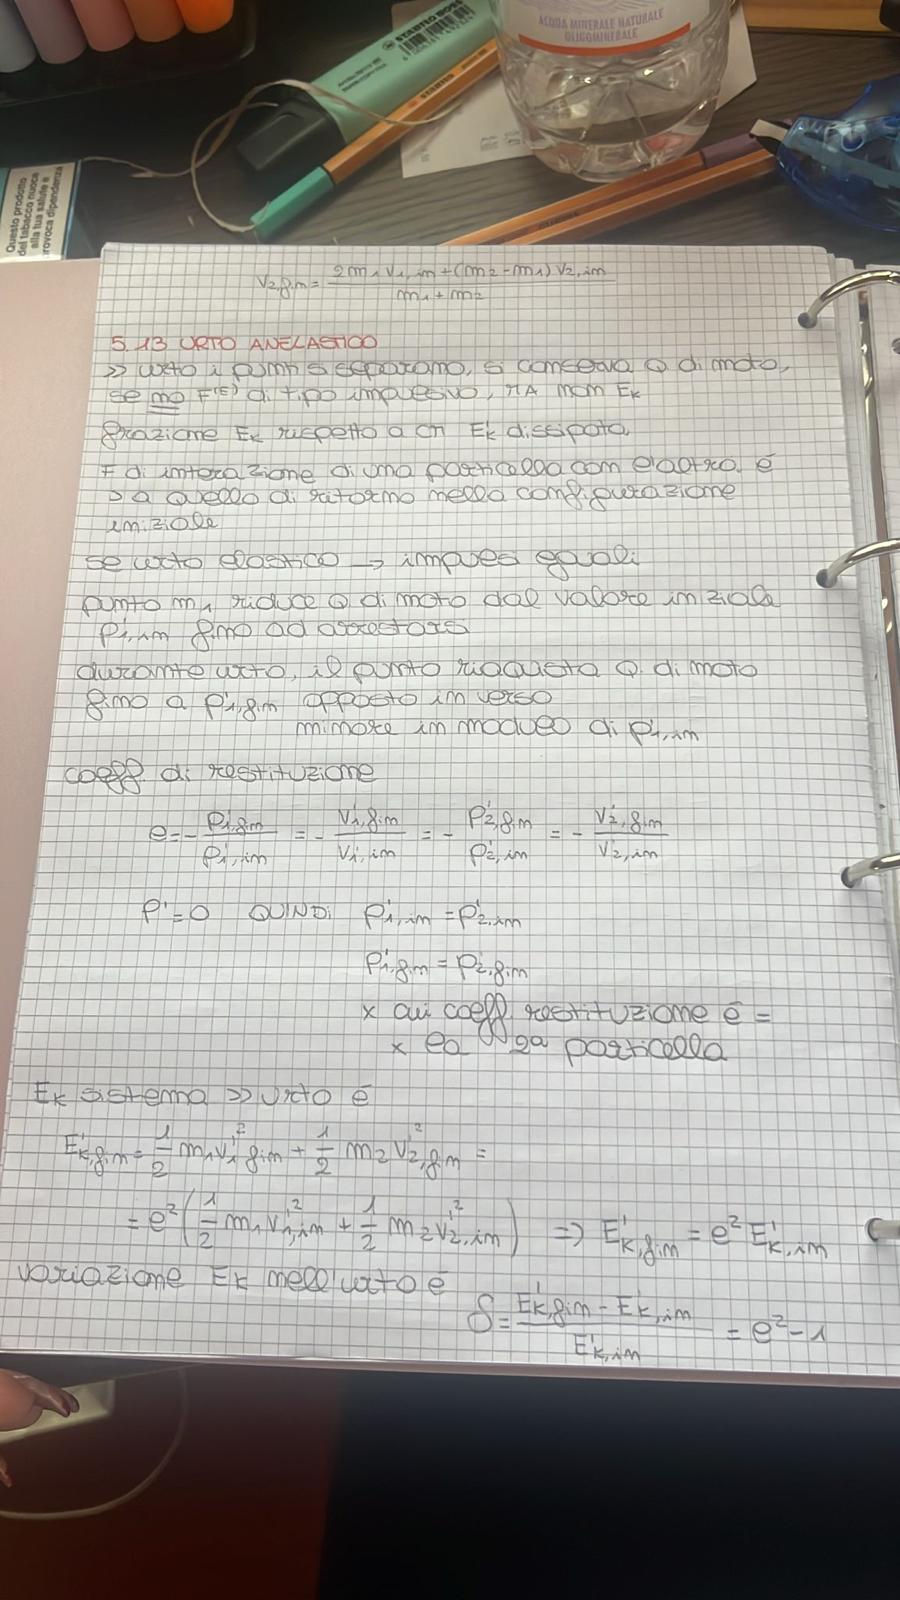 ACQUA MINERALE NATURALE
OLIGOMINERALE
STABILO BOSS
STABILO
Questo prodotto
del tabacco nuoce
alla tua salute e
provoca dipendenza
V2,fin = (2m1 V1,in + (m2 - m1) V2,in) / (m1 + m2)
5.13 URTO ANELASTICO
>> urto i punti si separano, si conserva Q di moto,
se no F(E) di tipo impulsivo, MA non Ek
frazione Ek rispetto a cm E'k dissipata
F di interazione di una particella con l'altra è
> a quello di ritorno nella configurazione
iniziale
se urto elastico → impulsi eguali
punto m1 riduce Q di moto dal valore iniziale
P'1,in fino ad arrestarsi
durante urto, il punto riaquista Q. di moto
fino a P'1,fin opposto in verso
minore in modulo di P'1,in
coeff. di restituzione
e = - P'1,fin / P'1,in = - V'1,fin / V'1,in = - P'2,fin / P'2,in = - V'2,fin / V'2,in
P' = 0 QUINDI P'1,in = P'2,in
P'1,fin = P'2,fin
x cui coeff. restituzione è =
x la 2a particella
Ek sistema >> urto è
E'k,fin = 1/2 m1 v'1²,fin + 1/2 m2 v'2²,fin =
= e² (1/2 m1 v'²1,in + 1/2 m2 v'²2,in) => E'k,fin = e² E'k,in
variazione Ek nell'urto è
δ = (E'k,fin - E'k,in) / E'k,in = e² - 1